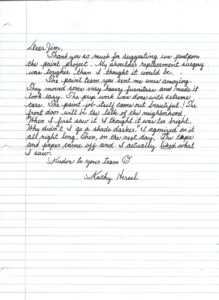 Dear Jim,
Thank you so much for suggesting we postpone
the paint project. My shoulder replacement surgery
was tougher than I thought it would be.
The paint team you sent me were amazing.
They moved some very heavy furniture and made it
look easy. The prep work was done with extreme
care. The paint job itself came out beautiful! The
front door will be the talk of the neighborhood.
When I first saw it I thought it was too bright.
Why didn't I go a shade darker. I agonized on it
all night long. Then, on the next day, the tape
and paper came off and I actually liked what
I saw.
Kudos to your team ☺
Kathy